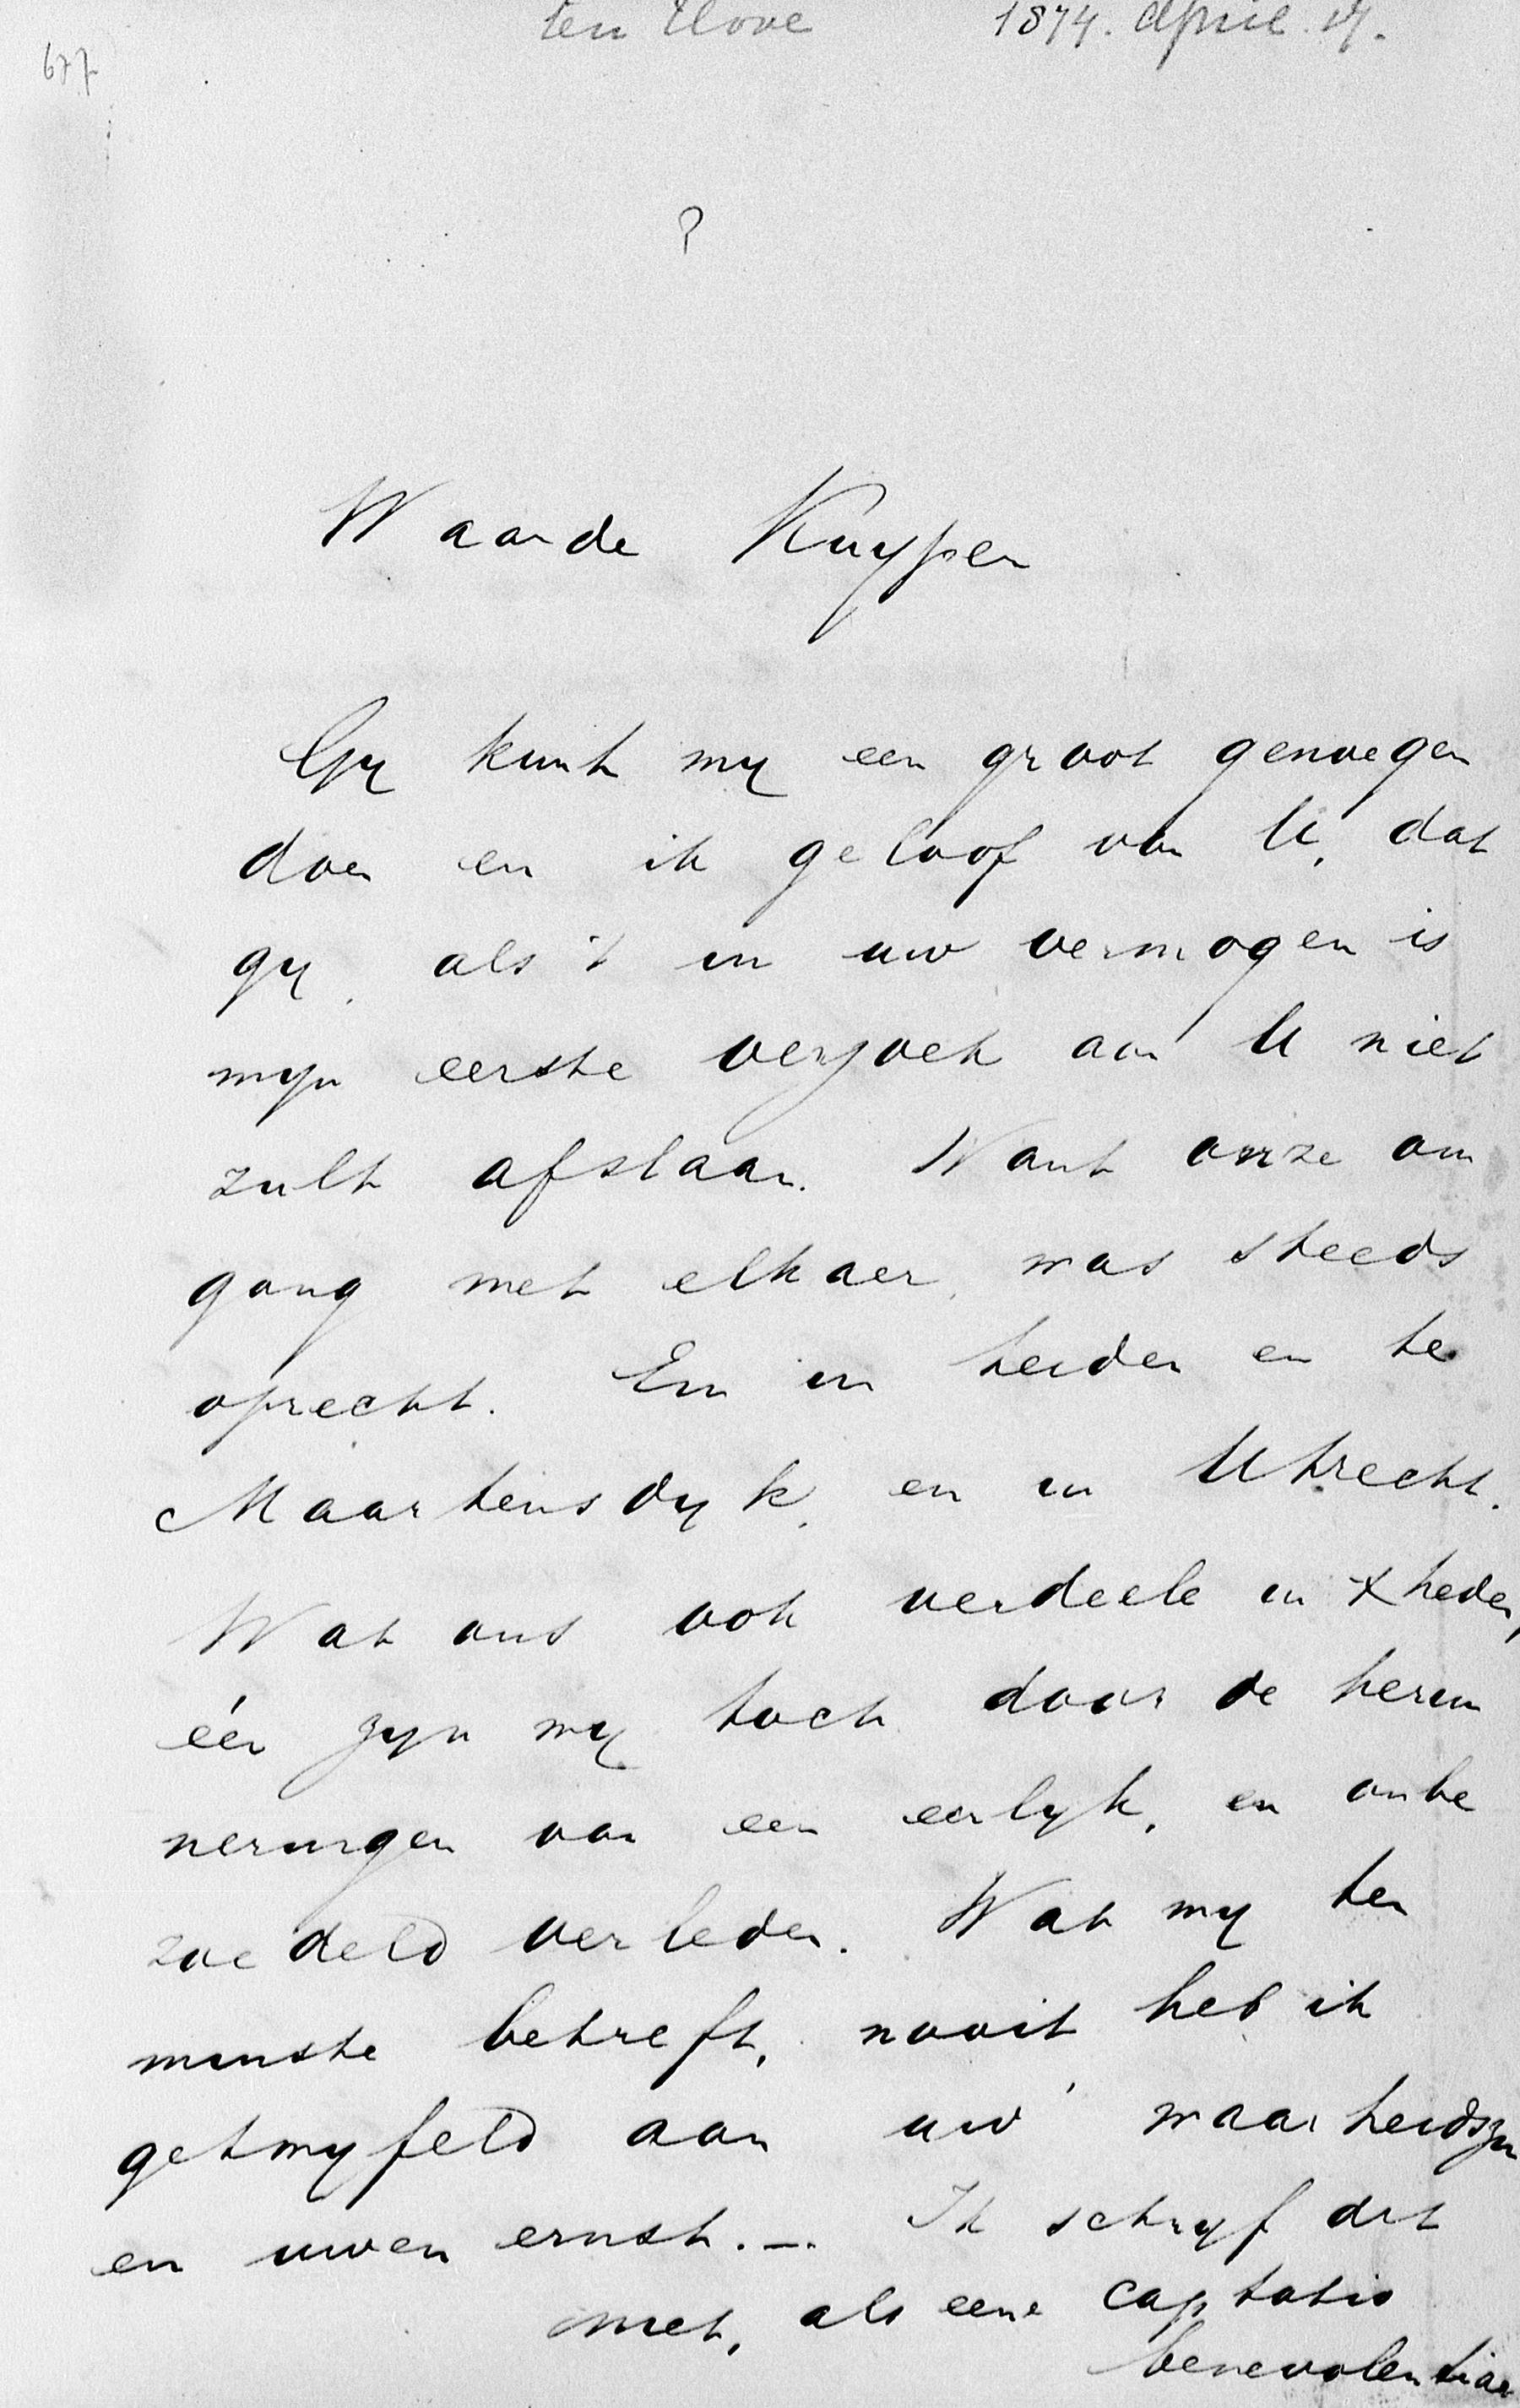 ten Hove 1874. April 17.
677
?
Waarde Kuyper
Gy kunt my een groot genoegen
doen en ik geloof van U, dat
gy, als 't in uw vermogen is
myn eerste verzoek aan U niet
zult afslaan. Want onze om
gang met elkaer, was steeds
oprecht. En in Leiden en te
Maartensdyk, en in Utrecht.
Wat ons ook verdeele in 't heden,
één zyn wy toch door de herin
neringen van een eerlyk, en onbe
zoedeld verleden. Wat my ten
minste betreft, nooit heb ik
getwyfeld aan uw' waarheidszin
en uwen ernst. — Ik schryf dit
niet, als eene captatio
benevolentiae